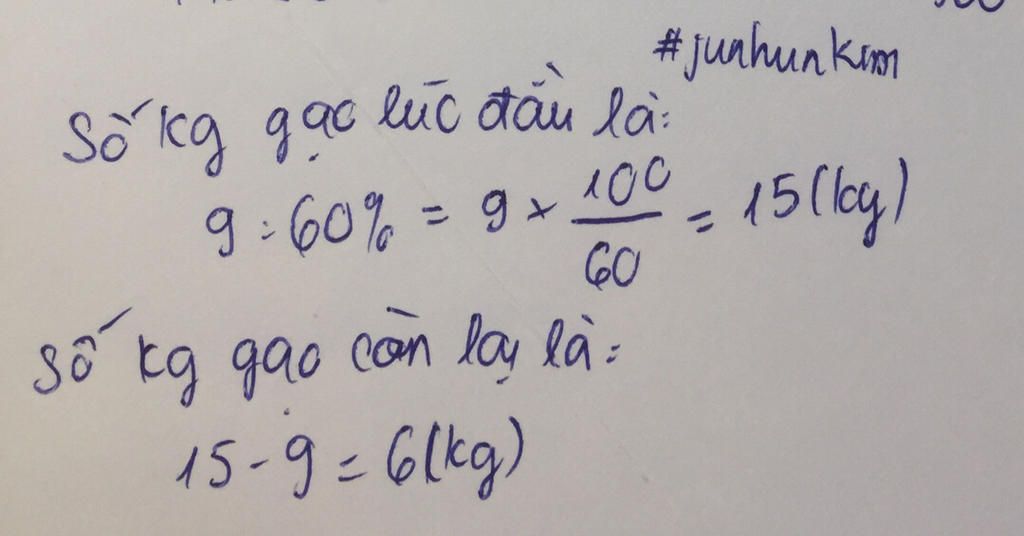 #junhunkim
Số kg gạo lúc đầu là:
9 : 60% = 9 × 100/60 = 15 (kg)
Số kg gạo còn lại là:
15 - 9 = 6 (kg)